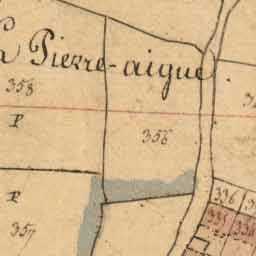 Pierre-aigue
358
P
356
P
357
336
335